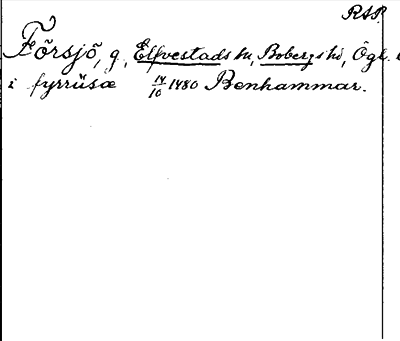 RAP.
Försjö, g., Elfvestads sn, Bobergs hd, Ögl.
i fyrriüsæ 14/10 1480 Benhammar.